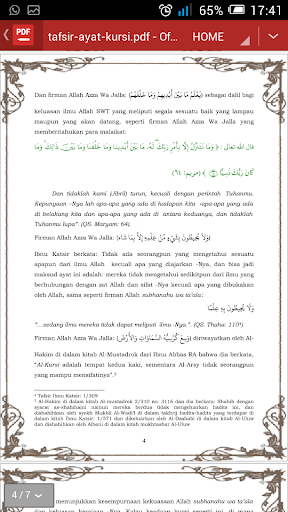 65% 17:41
PDF tafsir-ayat-kursi.pdf - Of... HOME
Dan firman Allah Azza Wa Jalla: (يَعْلَمُ مَا بَيْنَ أَيْدِيهِمْ وَمَا خَلْفَهُمْ) sebagai dalil bagi
keluasan ilmu Allah SWT yang meliputi segala sesuatu baik yang lampau
maupun yang akan datang, seperti firman Allah Azza Wa Jalla yang
memberitahukan para malaikat:
قال الله تعالى : ﴿ وَمَا نَتَنَزَّلُ إِلَّا بِأَمْرِ رَبِّكَ ۖ لَهُ مَا بَيْنَ أَيْدِينَا وَمَا خَلْفَنَا وَمَا بَيْنَ ذَٰلِكَ ۚ وَمَا
كَانَ رَبُّكَ نَسِيًّا ﴾ (مريم: ٦٤)
Dan tidaklah kami (Jibril) turun, kecuali dengan perintah Tuhanmu.
Kepunyaan -Nya lah apa-apa yang ada di hadapan kita -apa-apa yang ada
di belakang kita dan apa-apa yang ada di antara keduanya, dan tidaklah
Tuhanmu lupa". (QS. Maryam: 64).
Firman Allah Azza Wa Jalla: (وَلَا يُحِيطُونَ بِشَيْءٍ مِّنْ عِلْمِهِ إِلَّا بِمَا شَاءَ)
Ibnu Katsir berkata: Tidak ada seorangpun yang mengetahui sesuatu
apapun dari ilmu Allah kecuali apa yang diajarkan -Nya, dan bisa jadi
maksud ayat ini adalah: mereka tidak mengetahui sedikitpun dari ilmu yang
berhubungan dengan zat Allah dan sifat -Nya kecuali apa yang dibukakan
oleh Allah, sama seperti firman Allah subhanahu wa ta'ala:
وَلَا يُحِيطُونَ بِهِ عِلْمًا
"... sedang ilmu mereka tidak dapat meliputi ilmu -Nya.". (QS. Thaha: 110⁶)
Firman Allah Azza Wa Jalla: (وَسِعَ كُرْسِيُّهُ السَّمَاوَاتِ وَالْأَرْضَ) diriwayatkan oleh Al-
Hakim di dalam kitab Al-Mustadrok dari Ibnu Abbas RA bahwa dia berkata,
"Al-Kursi adalah tempat kedua kaki, sementara Al-Aray tidak seorangpun
yang mampu mensifatinya".⁷
⁶ Tafsir Ibnu Katsir: 1/309
⁷ Al-Hakim di dalam kitab Al-mustadrok 2/310 no: 3116 dan dia berkata: Shahih dengan
syarat as-shahihaini namun mereka berdua tidak mengeluarkan hadits ini, dan
4
4 / 7
menunjukkan kesempurnaan kekuasaan Allah subhanahu wa ta'ala